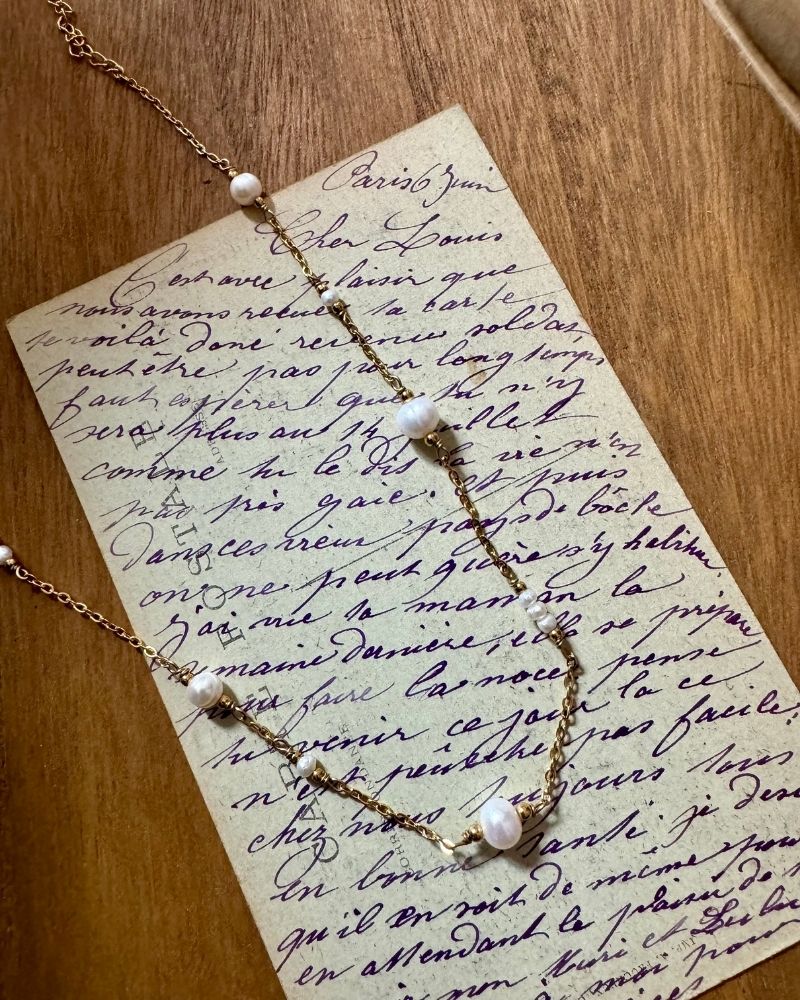 Paris 6 Juin
Cher Louis
C'est avec plaisir que
nous avons recue ta carte
te voilà donc revenu soldat,
peut être pas pour longtemps
faut espérer que tu n'y
sera plus au 14 Juillet
comme tu le dis la vie n'en
pas très gaie. Et puis
dans ces vieux pays de bôche
on ne peut guère s'y habituer
j'ai vue ta maman la
semaine dernière, elle se prépare
pour faire la noce pense
tu venir ce jour la ce
n'est peûtêtre pas facile.
chez nous toujours tous
en bonne santé, je desi
qu'il en soit de même pour
en attendant le plaisir de
mon et Lulu
moi pour
CARTE POSTALE